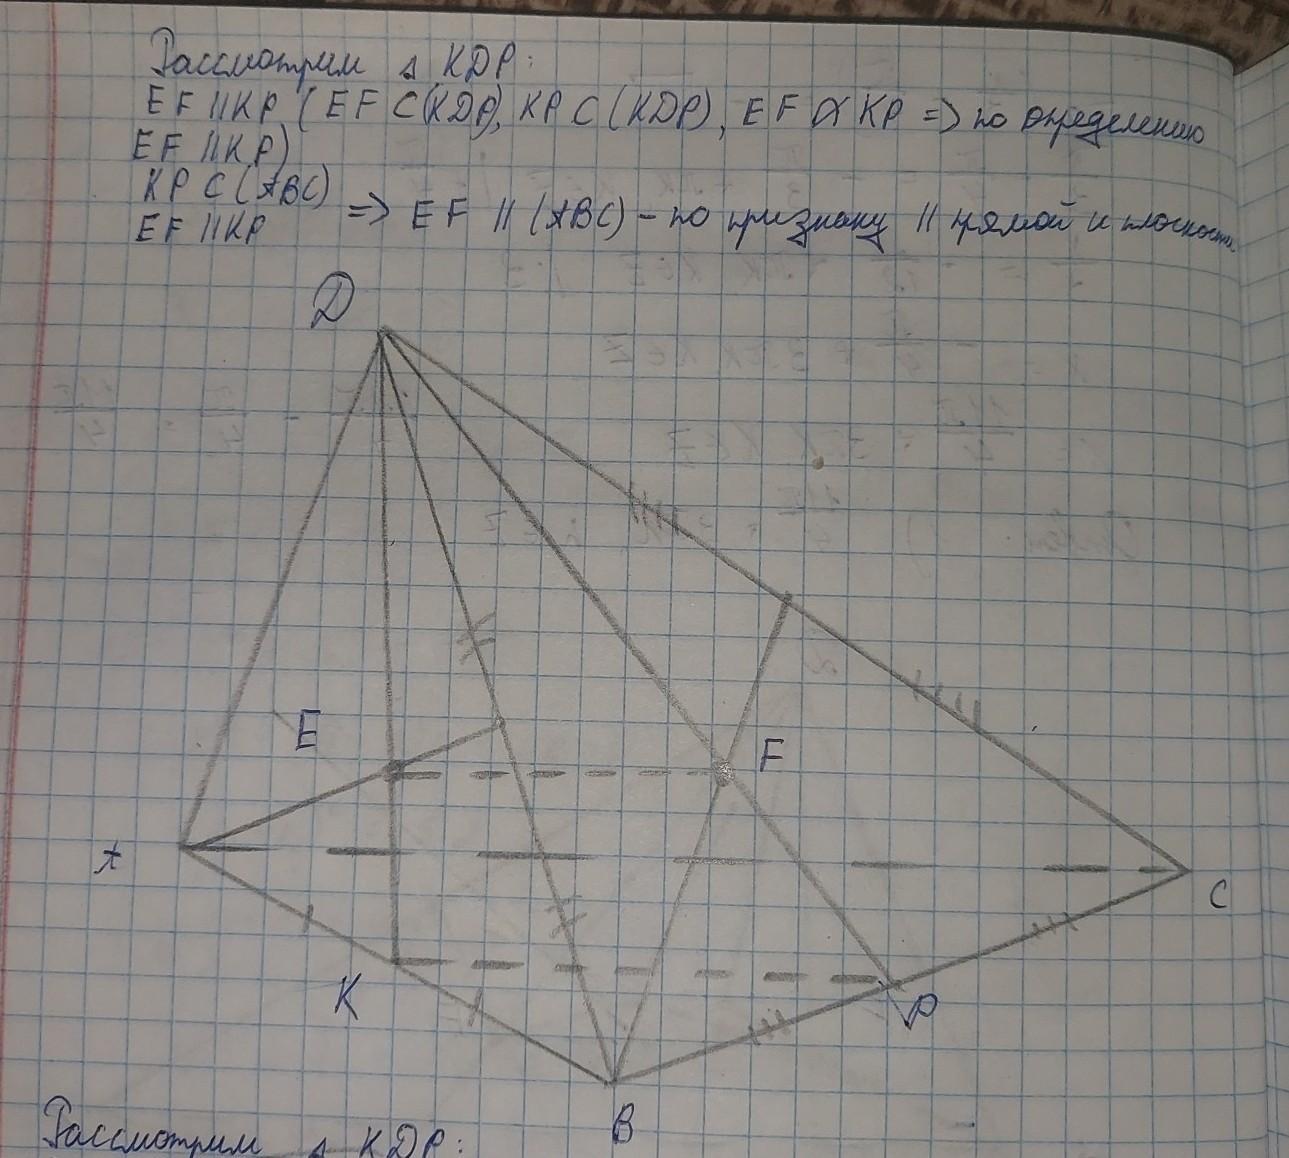 Рассмотрим △ KDP:
EF || KP (EF ⊂ (KDP), KP ⊂ (KDP), EF ∦ KP => по определению
EF || KP)
KP ⊂ (ABC)
EF || KP => EF || (ABC) - по признаку || прямой и плоскости.
D
E
F
A
C
K
P
B
Рассмотрим △ KDP: